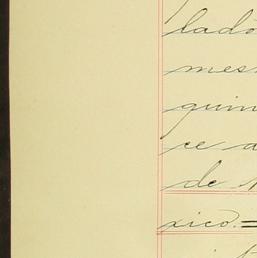 lado
mes
quin
ce a
de
xico.=